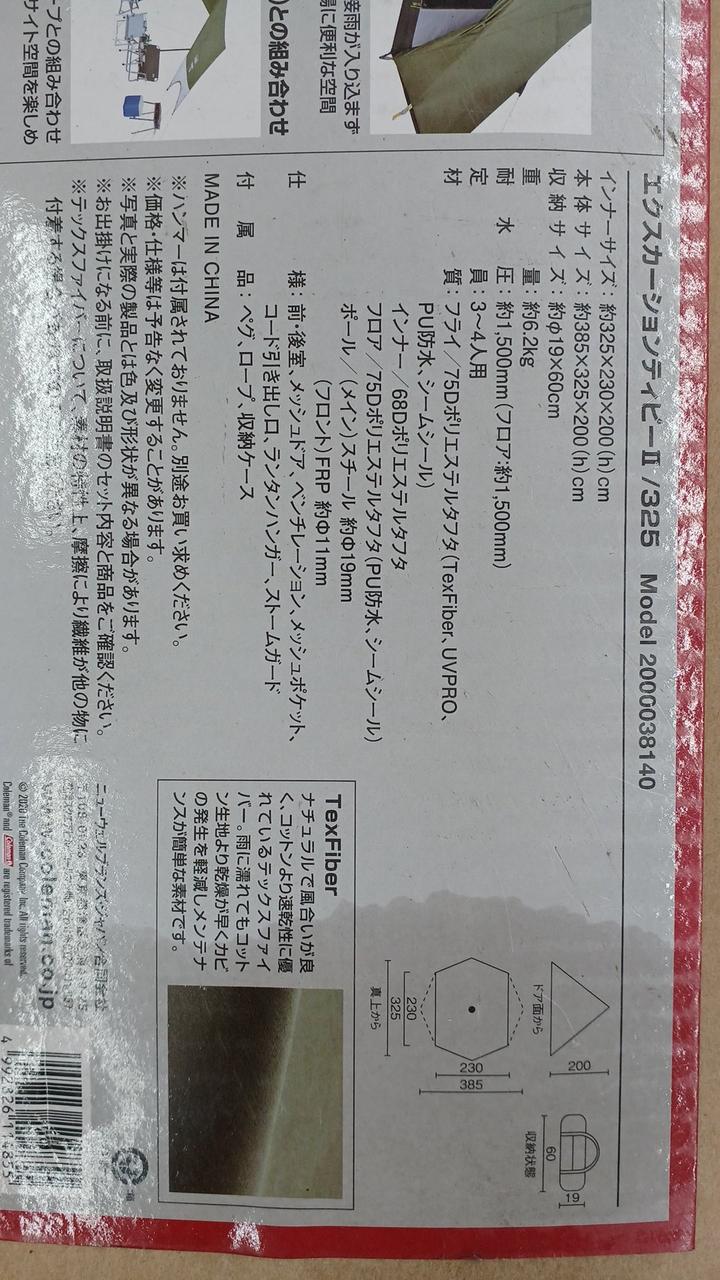 接雨が入り込まず
場に便利な空間
との組み合わせ
プとの組み合わせ
サイト空間を楽しめ
エクスカーションティピーⅡ/325 Model 2000038140
インナーサイズ：約325×230×200(h)cm
本体サイズ：約385×325×200(h)cm
収納サイズ：約φ19×60cm
重量：約6.2kg
耐水圧：約1,500mm(フロア:約1,500mm)
定員：3〜4人用
材質：フライ／75Dポリエステルタフタ(TexFiber、UVPRO、
PU防水、シームシール)
インナー／68Dポリエステルタフタ
フロア／75Dポリエステルタフタ(PU防水、シームシール)
ポール／(メイン)スチール 約Φ19mm
(フロント)FRP 約Φ11mm
仕様：前・後室、メッシュドア、ベンチレーション、メッシュポケット、
コード引き出し口、ランタンハンガー、ストームガード
付属品：ペグ、ロープ、収納ケース
MADE IN CHINA
※ハンマーは付属されておりません。別途お買い求めください。
※価格・仕様等は予告なく変更することがあります。
※写真と実際の製品とは色及び形状が異なる場合があります。
※お出掛けになる前に、取扱説明書のセット内容と商品をご確認ください。
※テックスファイバーについて、素材の特性上、摩擦により繊維が他の物に
付着する
ください。
ドア面から
200
230
325
真上から
230
385
60
収納状態
19
TexFiber
ナチュラルで風合いが良
く、コットンより速乾性に優
れているテックスファイ
バー。雨に濡れてもコット
ン生地より乾燥が早くカビ
の発生を軽減しメンテナ
ンスが簡単な素材です。
ニューウェルブランズ・ジャパン合同会社
www.coleman.co.jp
© 2020 The Coleman Company, Inc. All rights reserved.
Coleman® and Coleman are registered trademarks of
4 992826 114855